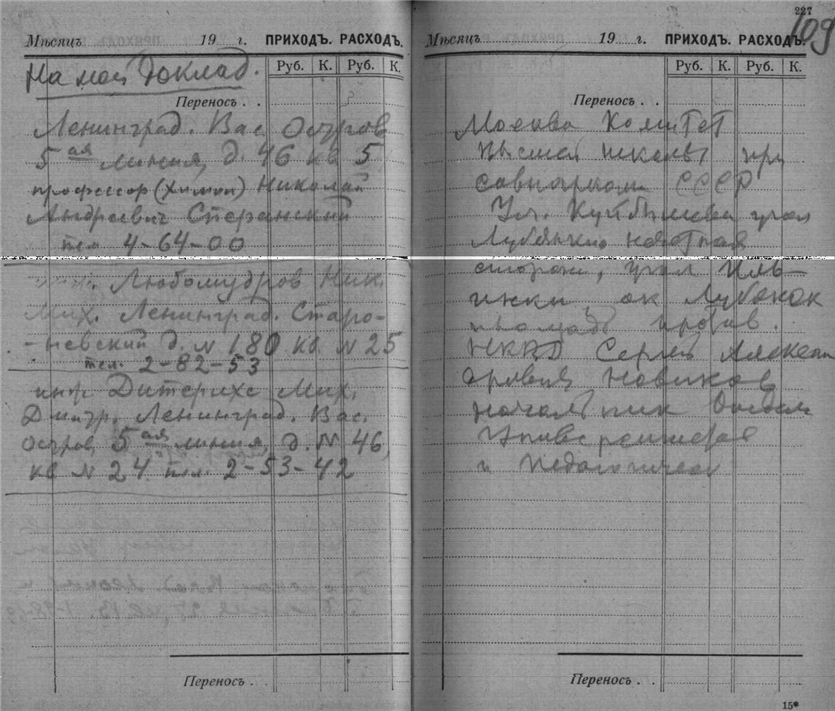 Мѣсяцъ 19 г. ПРИХОДЪ. РАСХОДЪ.
Руб. К. Руб. К.
На мой доклад.
Переносъ . .
Ленинград. Вас. Остров
5 ая линия, д. 46 кв 5
профессор (химии) Николай
Андреевич
тел 4-64-00
инж. Любомудров Ник.
Мих. Ленинград. Старо-
-невский д. № 180 кв. № 25
тел. 2-82-53
инж Дитерихс Мих.
Дмитр. Ленинград. Вас.
остров, 5 ая линия, д. № 46,
кв № 24 тел. 2-53-42
Переносъ . .
227
109
Мѣсяцъ 19 г. ПРИХОДЪ. РАСХОДЪ.
Руб. К. Руб. К.
Переносъ . .
Москва Комитет
высшей школы при
совнаркоме СССР
Ул. Куйбышева угол
Лубянки
сторона, угол Иль-
инки
площадь против.
НКВД Сергей Алексан
дрович Новиков
начальник
Университетов
и Педагогическ
Переносъ . .
15*